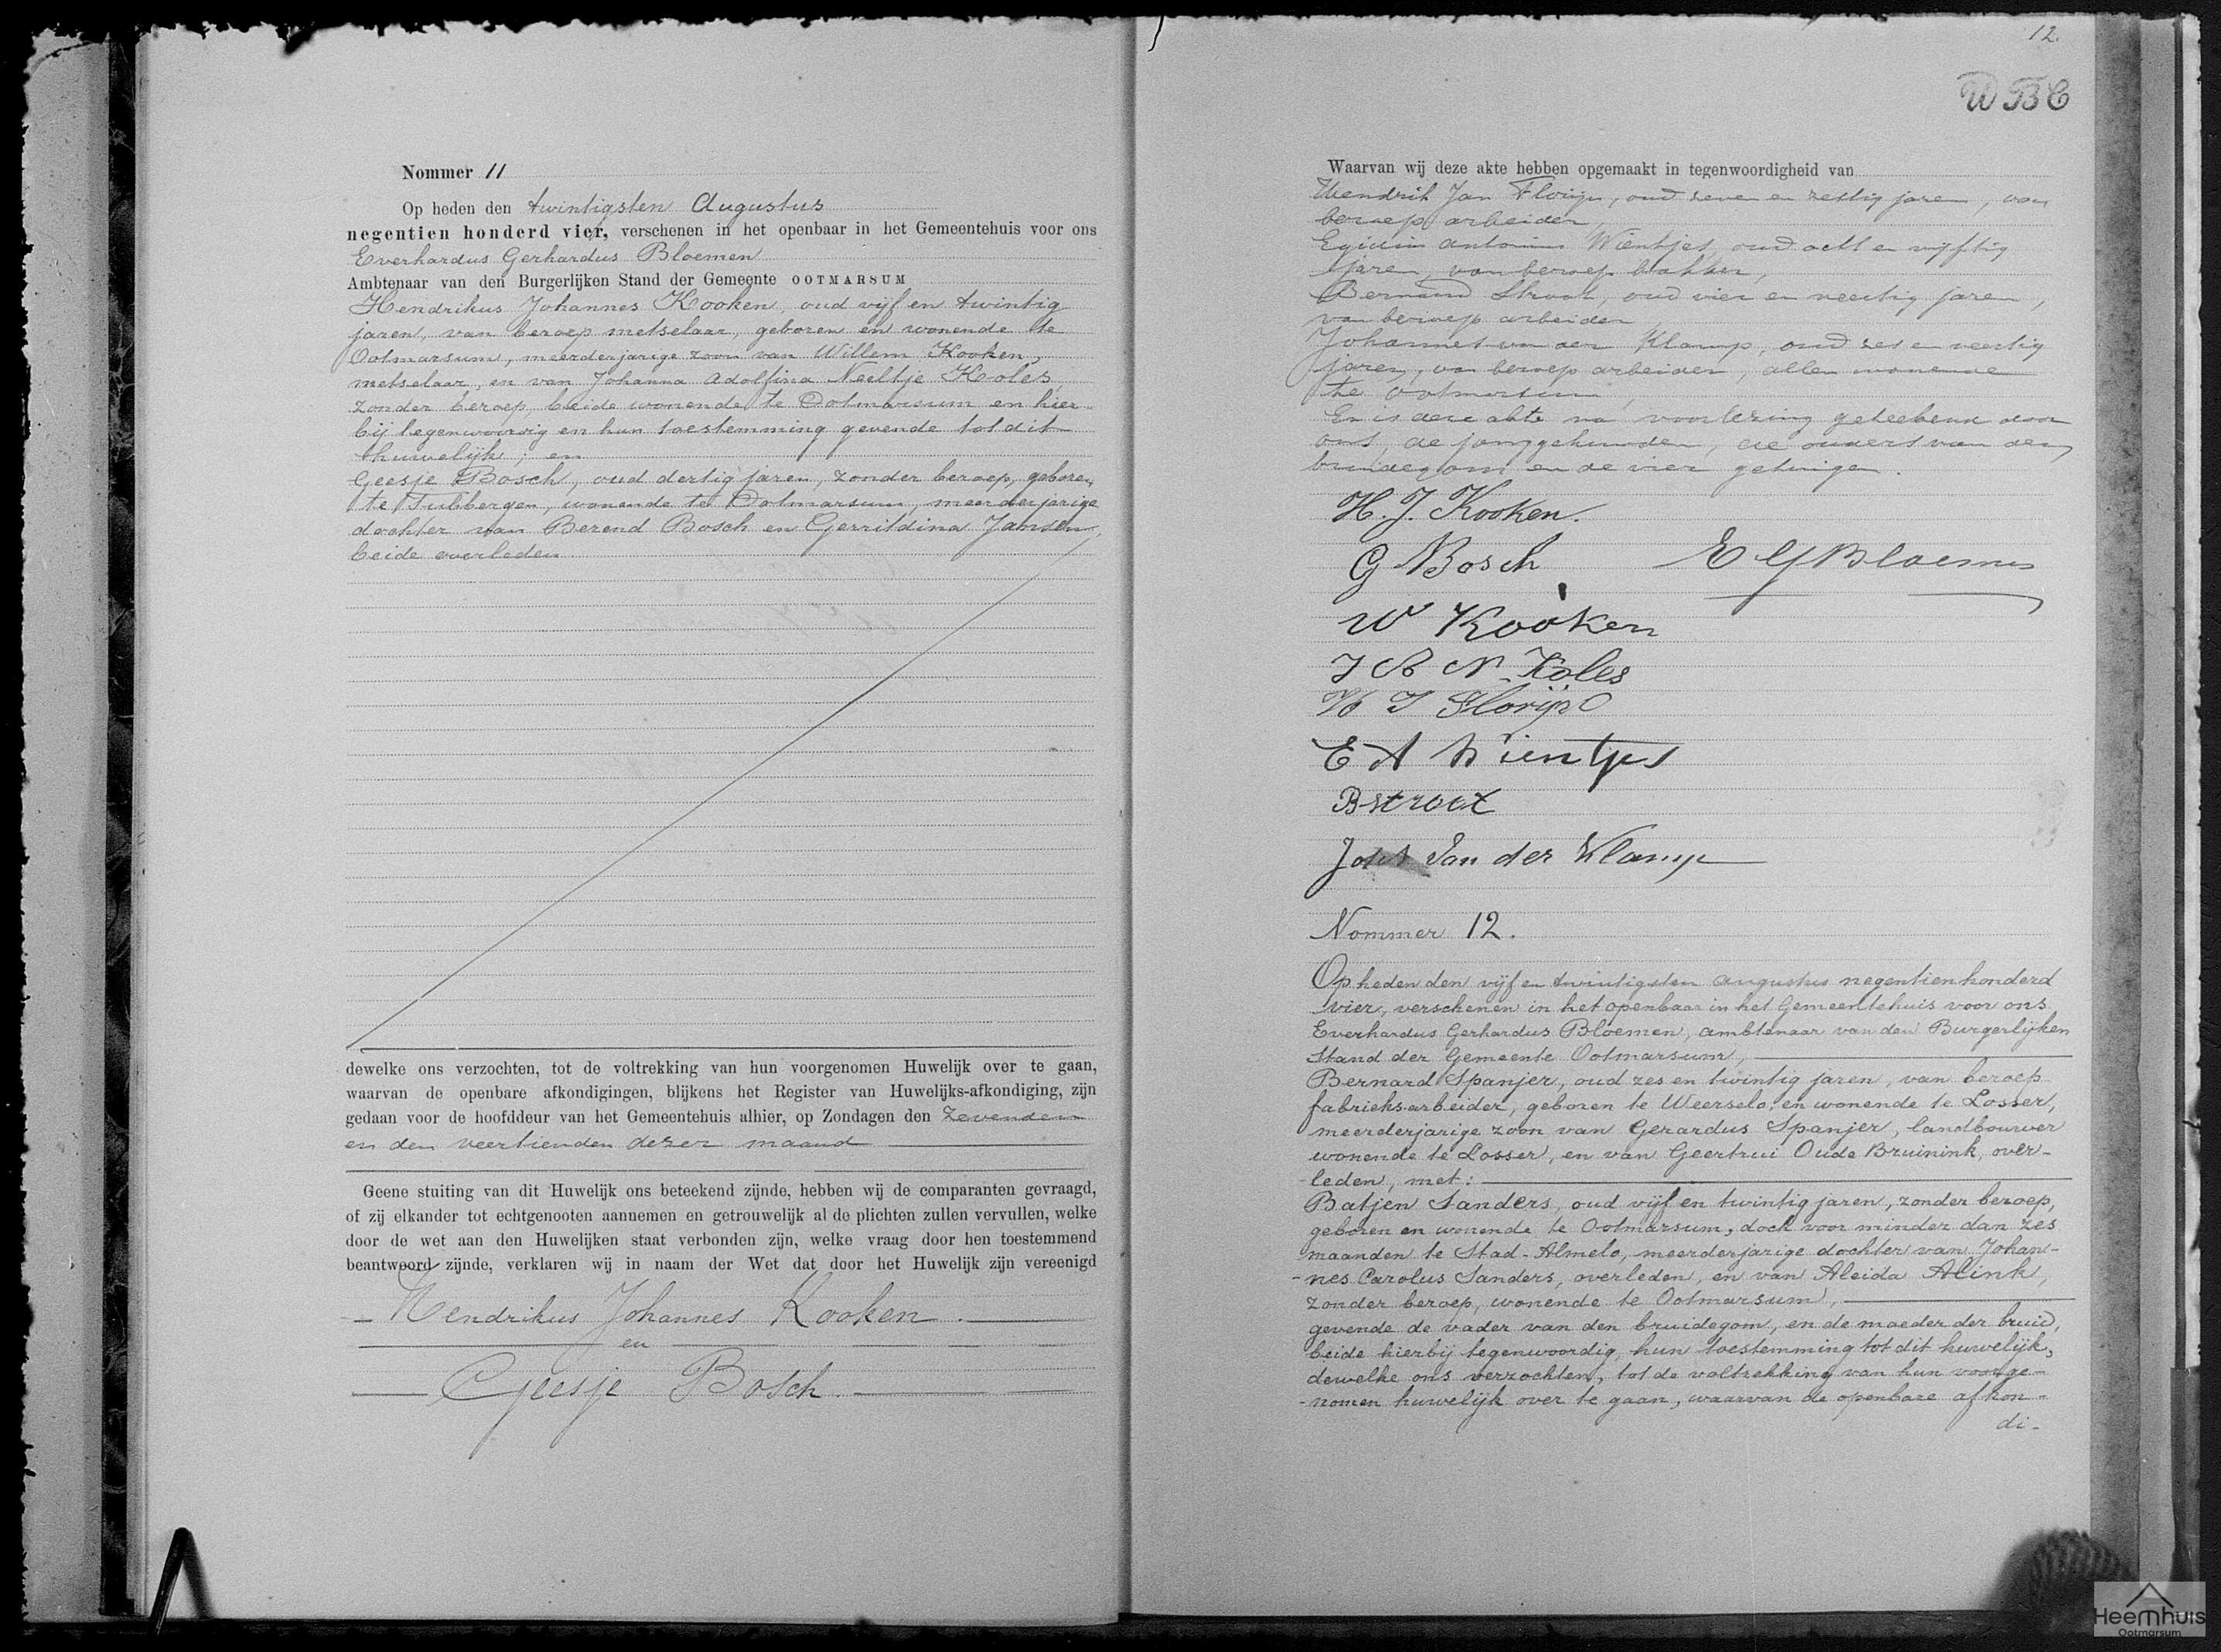 Nommer 11
Op heden den twintigsten Augustus
negentien honderd vier, verschenen in het openbaar in het Gemeentehuis voor ons
Everhardus Gerhardus Bloemen
Ambtenaar van den Burgerlijken Stand der Gemeente OOTMARSUM
Hendrikus Johannes Kooken, oud vijf en twintig
jaren, van beroep metselaar, geboren en wonende te
Ootmarsum, meerderjarige zoon van Willem Kooken,
metselaar, en van Johanna Adolfina Neeltje Koles,
zonder beroep, beide wonende te Ootmarsum en hier-
bij tegenwoordig en hun toestemming gevende tot dit
huwelijk; en
Geesje Bosch, oud dertig jaren, zonder beroep, geboren
te Tubbergen, wonende te Ootmarsum, meerderjarige
dochter van Berend Bosch en Gerritdina Jansen,
beide overleden
dewelke ons verzochten, tot de voltrekking van hun voorgenomen Huwelijk over te gaan,
waarvan de openbare afkondigingen, blijkens het Register van Huwelijks-afkondiging, zijn
gedaan voor de hoofddeur van het Gemeentehuis alhier, op Zondagen den zevenden
en den veertienden dezer maand
Geene stuiting van dit Huwelijk ons beteekend zijnde, hebben wij de comparanten gevraagd,
of zij elkander tot echtgenooten aannemen en getrouwelijk al de plichten zullen vervullen, welke
door de wet aan den Huwelijken staat verbonden zijn, welke vraag door hen toestemmend
beantwoord zijnde, verklaren wij in naam der Wet dat door het Huwelijk zijn vereenigd
Hendrikus Johannes Kooken.
en
Geesje Bosch.
12.
WBC
Waarvan wij deze akte hebben opgemaakt in tegenwoordigheid van
Hendrik Jan Florijn, oud zeven en zestig jaren, van
beroep arbeider,
Egidius Antonius Wientjes, oud acht en vijftig
jaren, van beroep bakker,
Bernard Stroot, oud vier en veertig jaren,
van beroep arbeider,
Johannes van der Klamp, oud zes en veertig
jaren, van beroep arbeider, allen wonende
te Ootmarsum,
En is deze akte na voorlezing geteekend door
ons, de jonggehuwden, de ouders van den
bruidegom en de vier getuigen.
H. J. Kooken.
G Bosch
E G Bloemen
W Kooken
J A N Koles
H J Florijn
E A Wientjes
B Stroot
Johs Van der Klamp
Nommer 12.
Op heden den vijf en twintigsten Augustus negentienhonderd
vier, verschenen in het openbaar in het Gemeentehuis voor ons
Everhardus Gerhardus Bloemen, ambtenaar van den Burgerlijken
Stand der Gemeente Ootmarsum,
Bernard Spanjer, oud zes en twintig jaren, van beroep
fabrieksarbeider, geboren te Weerselo, en wonende te Losser,
meerderjarige zoon van Gerardus Spanjer, landbouwer
wonende te Losser, en van Geertrui Oude Bruinink, over-
leden, met:
Batjen Sanders, oud vijf en twintig jaren, zonder beroep,
geboren en wonende te Ootmarsum, doch voor minder dan zes
maanden te Stad-Almelo, meerderjarige dochter van Johan-
-nes Carolus Sanders, overleden, en van Aleida Alink,
zonder beroep, wonende te Ootmarsum,
gevende de vader van den bruidegom, en de moeder der bruid,
beide hierbij tegenwoordig, hun toestemming tot dit huwelijk,
dewelke ons verzochten, tot de voltrekking van hun voorge-
-nomen huwelijk over te gaan, waarvan de openbare afkon-
di-
Heemhuis
Ootmarsum